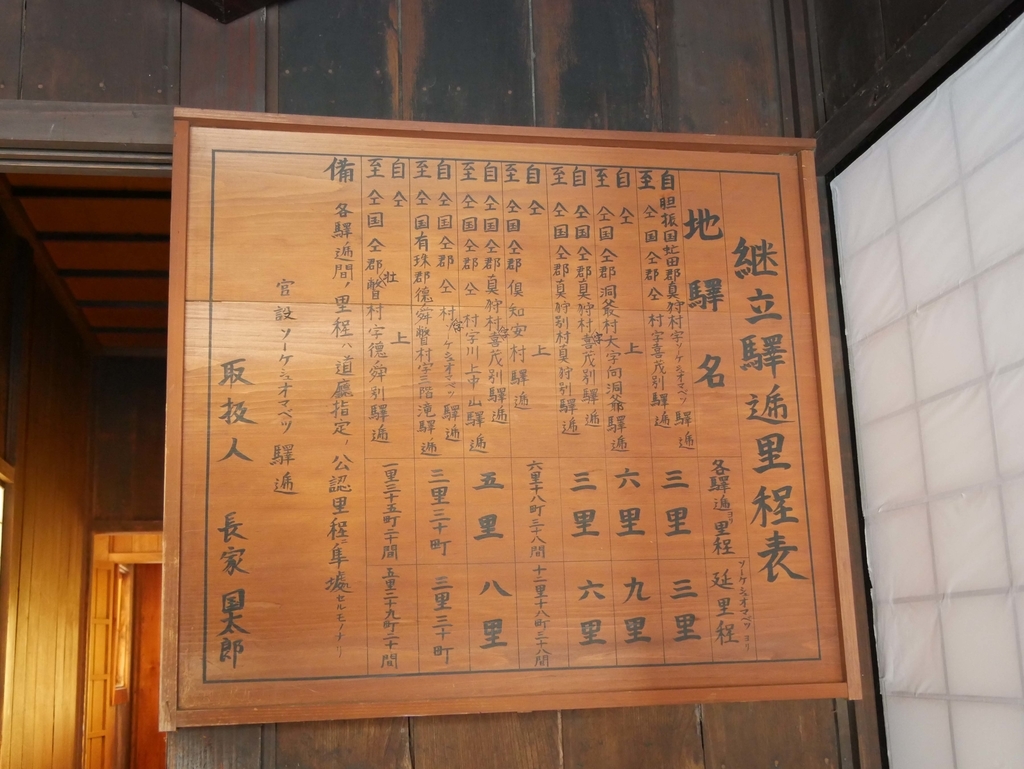 継立驛逓里程表
地驛名 各驛逓ヨリ里程 ソーケシュオマベツヨリ延里程
自胆振国虻田郡真狩村字ソーケシュオマベツ驛逓
至仝国仝郡仝村字喜茂別驛逓 三里 三里
自仝上
至仝国仝郡洞爺村大字向洞爺驛逓 六里 九里
自仝国仝郡真狩村喜茂別驛逓
至仝国仝郡真狩別村真狩別驛逓 三里 六里
自仝上
至仝国仝郡倶知安村驛逓 六里十八町三十八間 十二里十八町三十八間
自仝国仝郡真狩村喜茂別驛逓
至仝国仝郡仝村字川上中山驛逓 五里 八里
自仝国仝郡仝村ソーケシュオマベツ驛逓
至仝国有珠郡徳舜瞥村字三階滝驛逓 三里三十町 三里三十町
自仝上
至仝国仝郡壮瞥村字徳舜別驛逓 一里三十五町二十間 五里二十九町二十間
備 各驛逓間ノ里程ハ道廳指定ノ公認里程ニ準據セルモノナリ
官設ソーケシュオマベツ驛逓
取扱人 長家国太郎